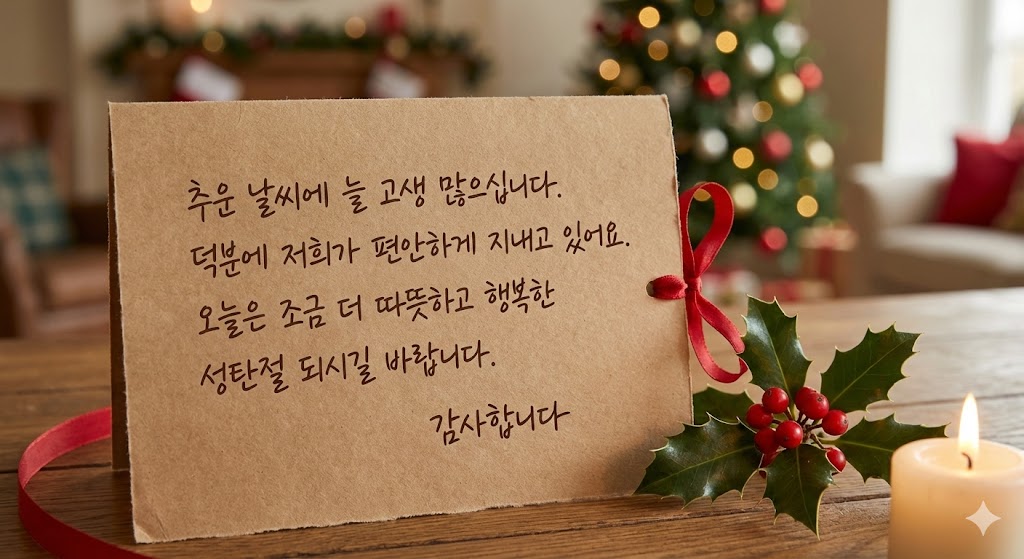 추운 날씨에 늘 고생 많으십니다.
덕분에 저희가 편안하게 지내고 있어요.
오늘은 조금 더 따뜻하고 행복한
성탄절 되시길 바랍니다.
감사합니다